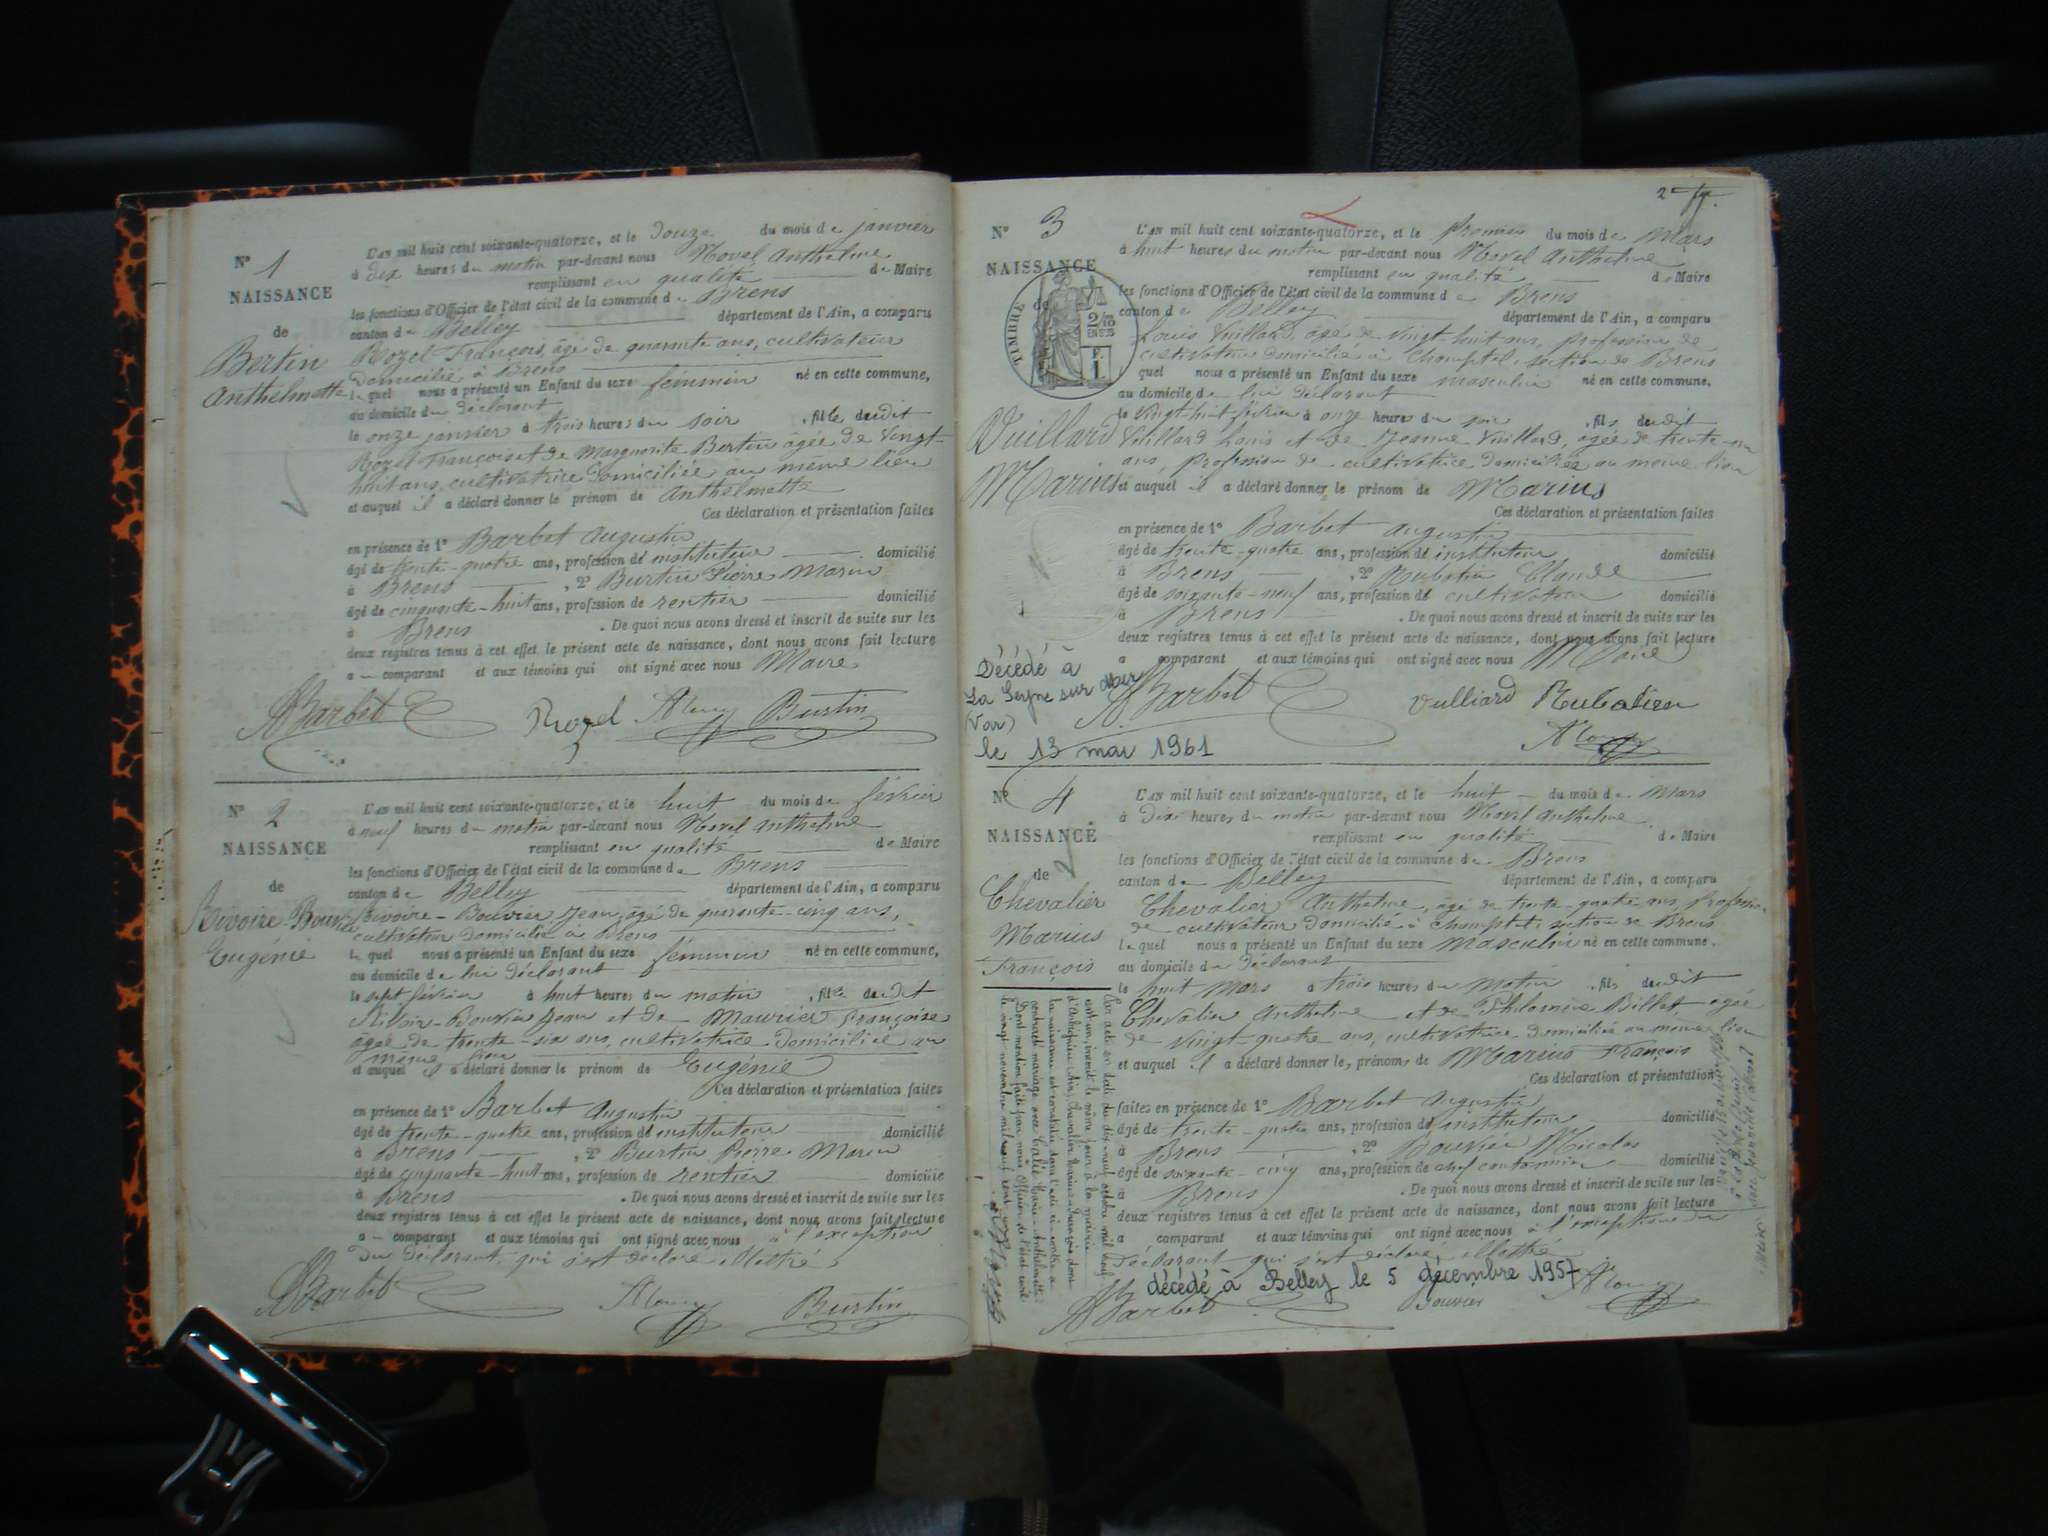 N° 1
NAISSANCE
de
Bertin
Anthelmette
L'an mil huit cent soixante-quatorze, et le douze du mois de janvier
à dix heures du matin par-devant nous Novel Anthelme
remplissant en qualité de Maire
les fonctions d'Officier de l'état civil de la commune de Brens
canton de Belley département de l'Ain, a comparu
Rozel François, âgé de quarante ans, cultivateur
domicilié à Brens
lequel nous a présenté un Enfant du sexe féminin né en cette commune,
au domicile du déclarant
le onze janvier à trois heures du soir, fille dudit
Rozel François et de Marguerite Bertin âgée de vingt-
huit ans, cultivatrice domiciliée au même lieu
et auquel il a déclaré donner le prénom de Anthelmette
Ces déclaration et présentation faites
en présence de 1° Barbet Augustin
âgé de trente-quatre ans, profession de instituteur domicilié
à Brens, 2° Burtin Pierre Marin
âgé de cinquante-huit ans, profession de rentier domicilié
à Brens. De quoi nous avons dressé et inscrit de suite sur les
deux registres tenus à cet effet le présent acte de naissance, dont nous avons fait lecture
au comparant et aux témoins qui ont signé avec nous Maire
ABarbet Rozel Burtin
N° 2
NAISSANCE
de
Rivoire-Bouvier
Eugénie
L'an mil huit cent soixante-quatorze, et le huit du mois de février
à neuf heures du matin par-devant nous Novel Anthelme
remplissant en qualité de Maire
les fonctions d'Officier de l'état civil de la commune de Brens
canton de Belley département de l'Ain, a comparu
Rivoire-Bouvier Jean, âgé de quarante-cinq ans,
cultivateur domicilié à Brens
lequel nous a présenté un Enfant du sexe féminin né en cette commune,
au domicile de lui déclarant
le sept février à huit heures du matin, fille dudit
Rivoire-Bouvier Jean et de Maurier Françoise
âgée de trente-six ans, cultivatrice domiciliée au
même lieu
et auquel il a déclaré donner le prénom de Eugénie
Ces déclaration et présentation faites
en présence de 1° Barbet Augustin
âgé de trente-quatre ans, profession de instituteur domicilié
à Brens, 2° Burtin Pierre Marin
âgé de cinquante-huit ans, profession de rentier domicilié
à Brens. De quoi nous avons dressé et inscrit de suite sur les
deux registres tenus à cet effet le présent acte de naissance, dont nous avons fait lecture
au comparant et aux témoins qui ont signé avec nous à l'exception
du déclarant qui s'est déclaré illettré
ABarbet Burtin
2
N° 3
NAISSANCE
de
TIMBRE
Vuillard
Marius
L'an mil huit cent soixante-quatorze, et le premier du mois de mars
à huit heures du matin par-devant nous Novel Anthelme
remplissant en qualité de Maire
les fonctions d'Officier de l'état civil de la commune de Brens
canton de Belley département de l'Ain, a comparu
Louis Vuillard, âgé de vingt-huit ans, profession de
cultivateur domicilié à Champtel, section de Brens
quel nous a présenté un Enfant du sexe masculin né en cette commune,
au domicile de lui déclarant
le vingt-huit février à onze heures du soir, fils dudit
Vuillard Louis et de Jeanne Vuillard, âgée de trente-un
ans, profession de cultivatrice domiciliée au même lieu
et auquel il a déclaré donner le prénom de Marius
Ces déclaration et présentation faites
en présence de 1° Barbet Augustin
âgé de trente-quatre ans, profession de instituteur domicilié
à Brens, 2° Rubatin Claude
âgé de soixante-neuf ans, profession de cultivateur domicilié
à Brens. De quoi nous avons dressé et inscrit de suite sur les
deux registres tenus à cet effet le présent acte de naissance, dont nous avons fait lecture
a comparant et aux témoins qui ont signé avec nous Maire
Décédé à
La Seyne sur Mer
(Var)
le 13 mai 1961
ABarbet Vulliard Rubatien
N° 4
NAISSANCE
de
Chevalier
Marius
François
L'an mil huit cent soixante-quatorze, et le huit du mois de Mars
à dix heures du matin par-devant nous Novel Anthelme
remplissant en qualité de Maire
les fonctions d'Officier de l'état civil de la commune de Brens
canton de Belley département de l'Ain, a comparu
Chevalier Anthelme, âgé de trente-quatre ans, profession
de cultivateur domicilié à Champtel, section de Brens
lequel nous a présenté un Enfant du sexe masculin né en cette commune,
au domicile du déclarant
le huit Mars à trois heures du matin, fils dudit
Chevalier Anthelme et de Philomène Billet, âgée
de vingt-quatre ans, cultivatrice domiciliée au même lieu
et auquel il a déclaré donner le prénoms de Marius François
Ces déclaration et présentation
faites en présence de 1° Barbet Augustin
âgé de trente-quatre ans, profession de instituteur domicilié
à Brens, 2° Bouvier Nicolas
âgé de soixante-cinq ans, profession de domicilié
à Brens. De quoi nous avons dressé et inscrit de suite sur les
deux registres tenus à cet effet le présent acte de naissance, dont nous avons fait lecture
a comparant et aux témoins qui ont signé avec nous à l'exception du
déclarant qui s'est déclaré illettré
décédé à Belley le 5 décembre 1957
ABarbet Bouvier